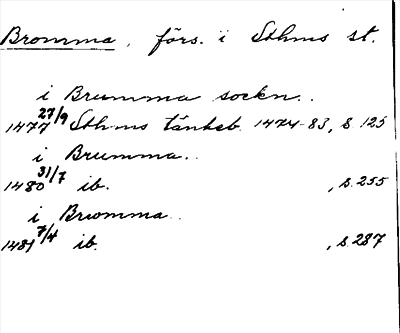 Bromma, förs. i Sthms st.
i Brumma sockn..
1477 27/9 Sthms tänkeb. 1474-83, s. 125
i Brumma..
1480 31/7 ib. , s. 255
i Bromma..
1481 7/4 ib. , s. 287